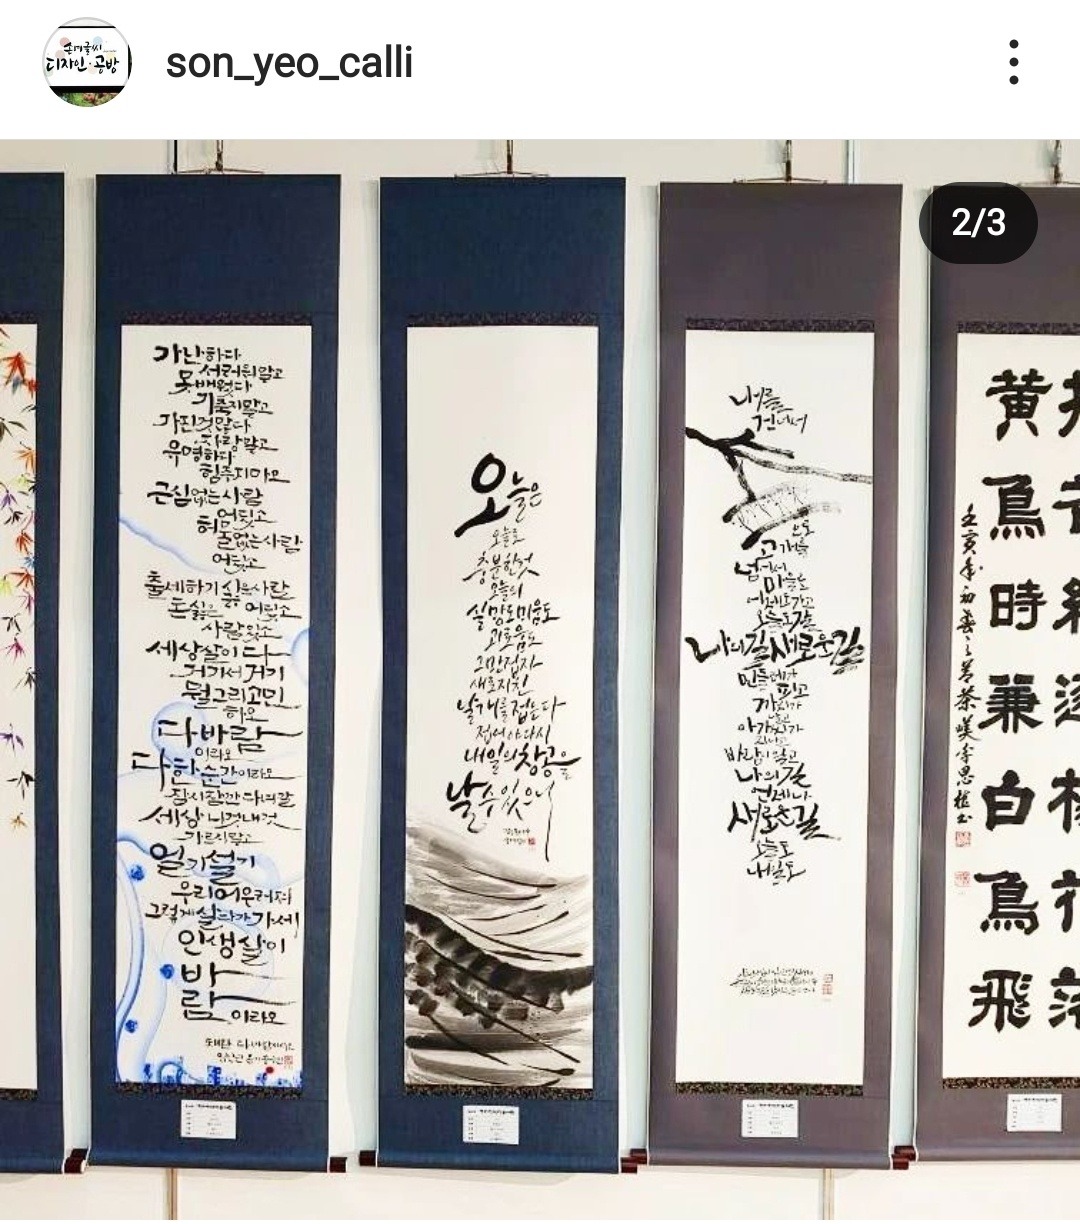 손여글씨
디자인·공방
son_yeo_calli
2/3
가난하다
서러워말고
못배웠다
기죽지말고
가진것많다
자랑말고
유명하다
힘주지마오
근심없는 사람
어딨고
허
물없는사람
어딨소
출세하기 싫은사람
돈싫은 어딨소
사람있소
세상살이 다
거기서 거기
뭘그리고민
하오
다바람
이라오
다한순간이라오
잠시잠깐 다녀갈
세상 니것내것
가르지말고
얼기설기
우리어우러져
그렇게살다가가세
인생살이
바
람 이라오
오늘은
오늘로
충분한것
오늘의
실망도미움도
괴로움도
그만접자
새로지친
날개를접는다
접어야다시
내일의창공을
날수있으니
내를
건너서
숲으로
고개를
넘어서
마을로
어제도가고
오늘도갈
나의길새로운길
민들레가
피고
까치가
날고
아가씨가
지나고
바람이일고
나의길
언제나
새로운길
오늘도
내일도
黃鳥時兼白鳥飛